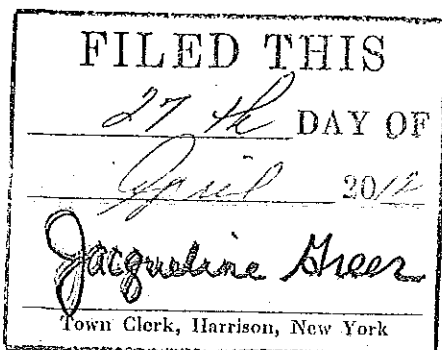 FILED THIS
27 th DAY OF
April 2012
Jacqueline Greer
Town Clerk, Harrison, New York